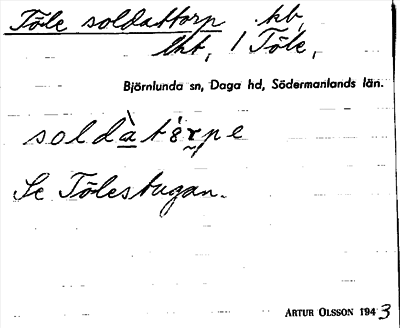 Töle soldattorp kb,
lht, 1 Töle,
Björnlunda sn, Daga hd, Södermanlands län.
soldàtèrpe
Se Tölestugan.
ARTUR OLSSON 1943